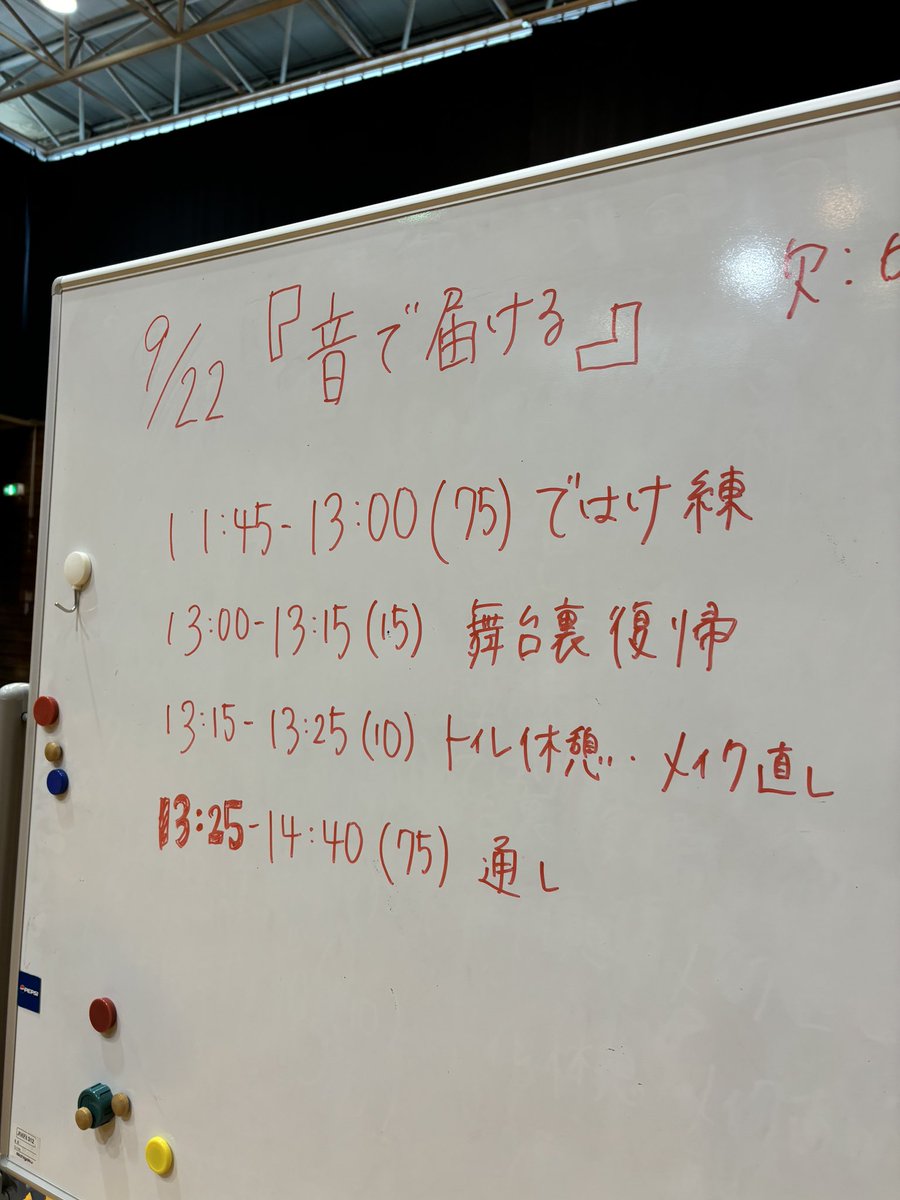 9/22 『音で届ける』
欠:
11:45-13:00(75) ではけ練
13:00-13:15(15) 舞台裏復帰
13:15-13:25(10) トイレ休憩・メイク直し
13:25-14:40(75) 通し
PEPSI